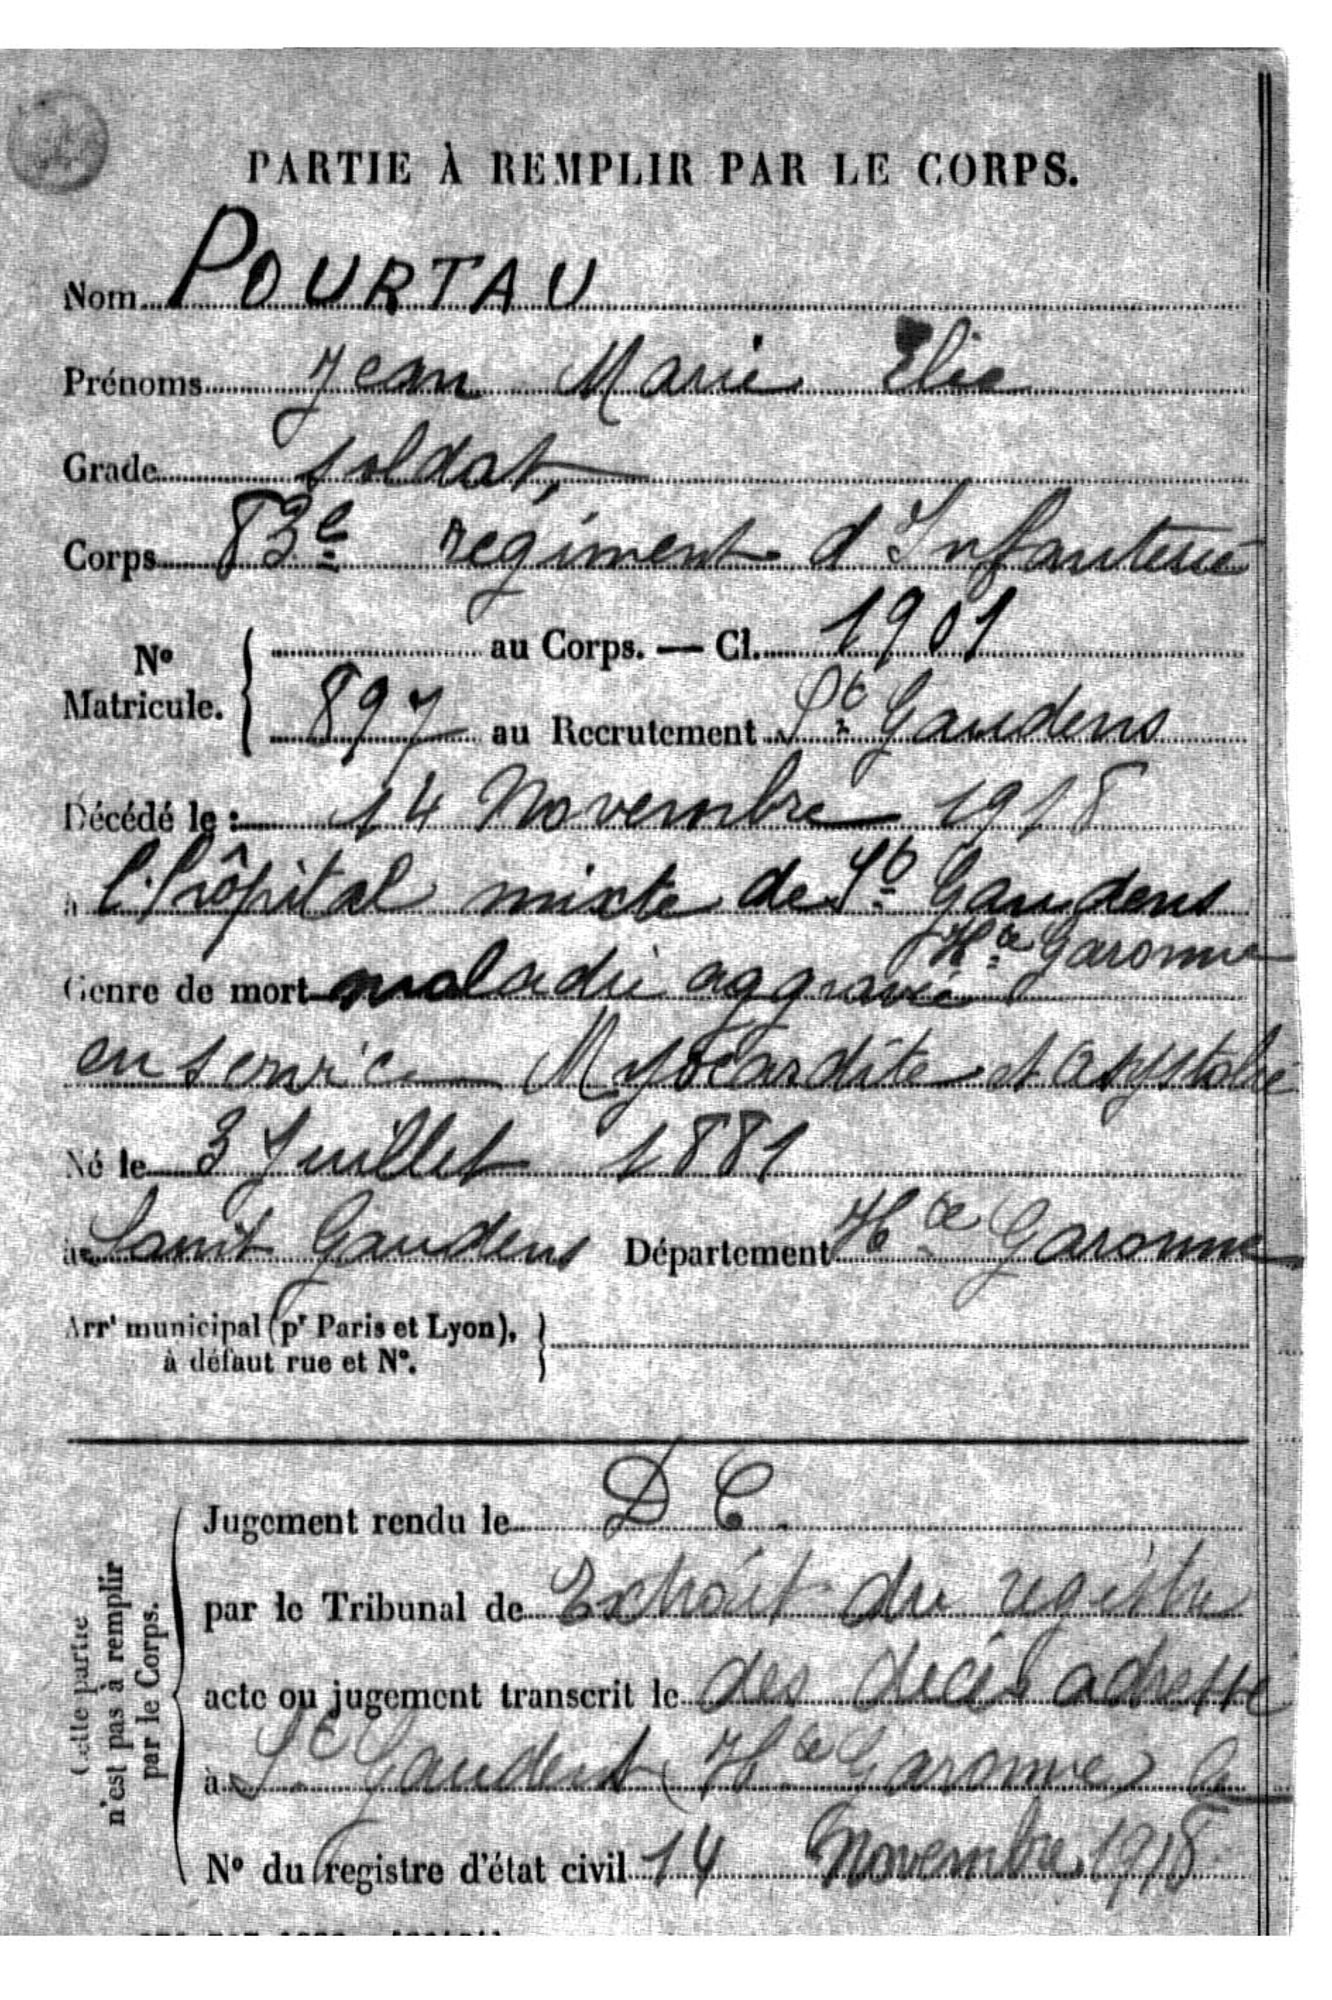 PARTIE À REMPLIR PAR LE CORPS.
Nom POURTAU
Prénoms Jean Marie Elie
Grade soldat,
Corps 83e régiment d'Infanterie
No Matricule. { au Corps. — Cl. 1901
897 au Recrutement St Gaudens
Décédé le : 14 Novembre 1918
à l'hôpital mixte de St Gaudens
Hte Garonne
Genre de mort maladie aggravée
en service Myocardite et asystolie
Né le 3 Juillet 1881
à Saint Gaudens Département Hte Garonne
Arrt municipal (pr Paris et Lyon),
à défaut rue et No.
Cette partie
n'est pas à remplir
par le Corps.
Jugement rendu le D C.
par le Tribunal de Extrait du registre
acte ou jugement transcrit le des décés adressé
à St Gaudens (Hte Garonne) le
No du registre d'état civil 14 Novembre 1918